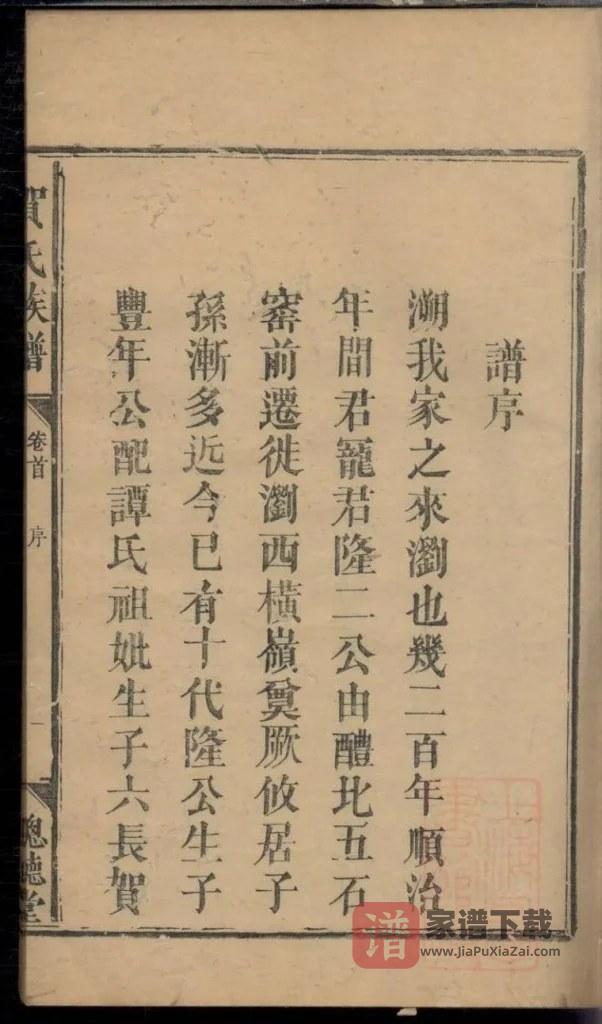 譜序
溯我家之來瀏也幾二百年順治
年間君寵君隆二公由醴北五石
窰前遷徙瀏西橫嶺奠厥攸居子
孫漸多近今已有十代隆公生子
豐年公配譚氏祖妣生子六長賀
賀氏族譜
卷首
序
一
聰聽堂
谱
家谱下载
www.JiaPuXiaZai.com